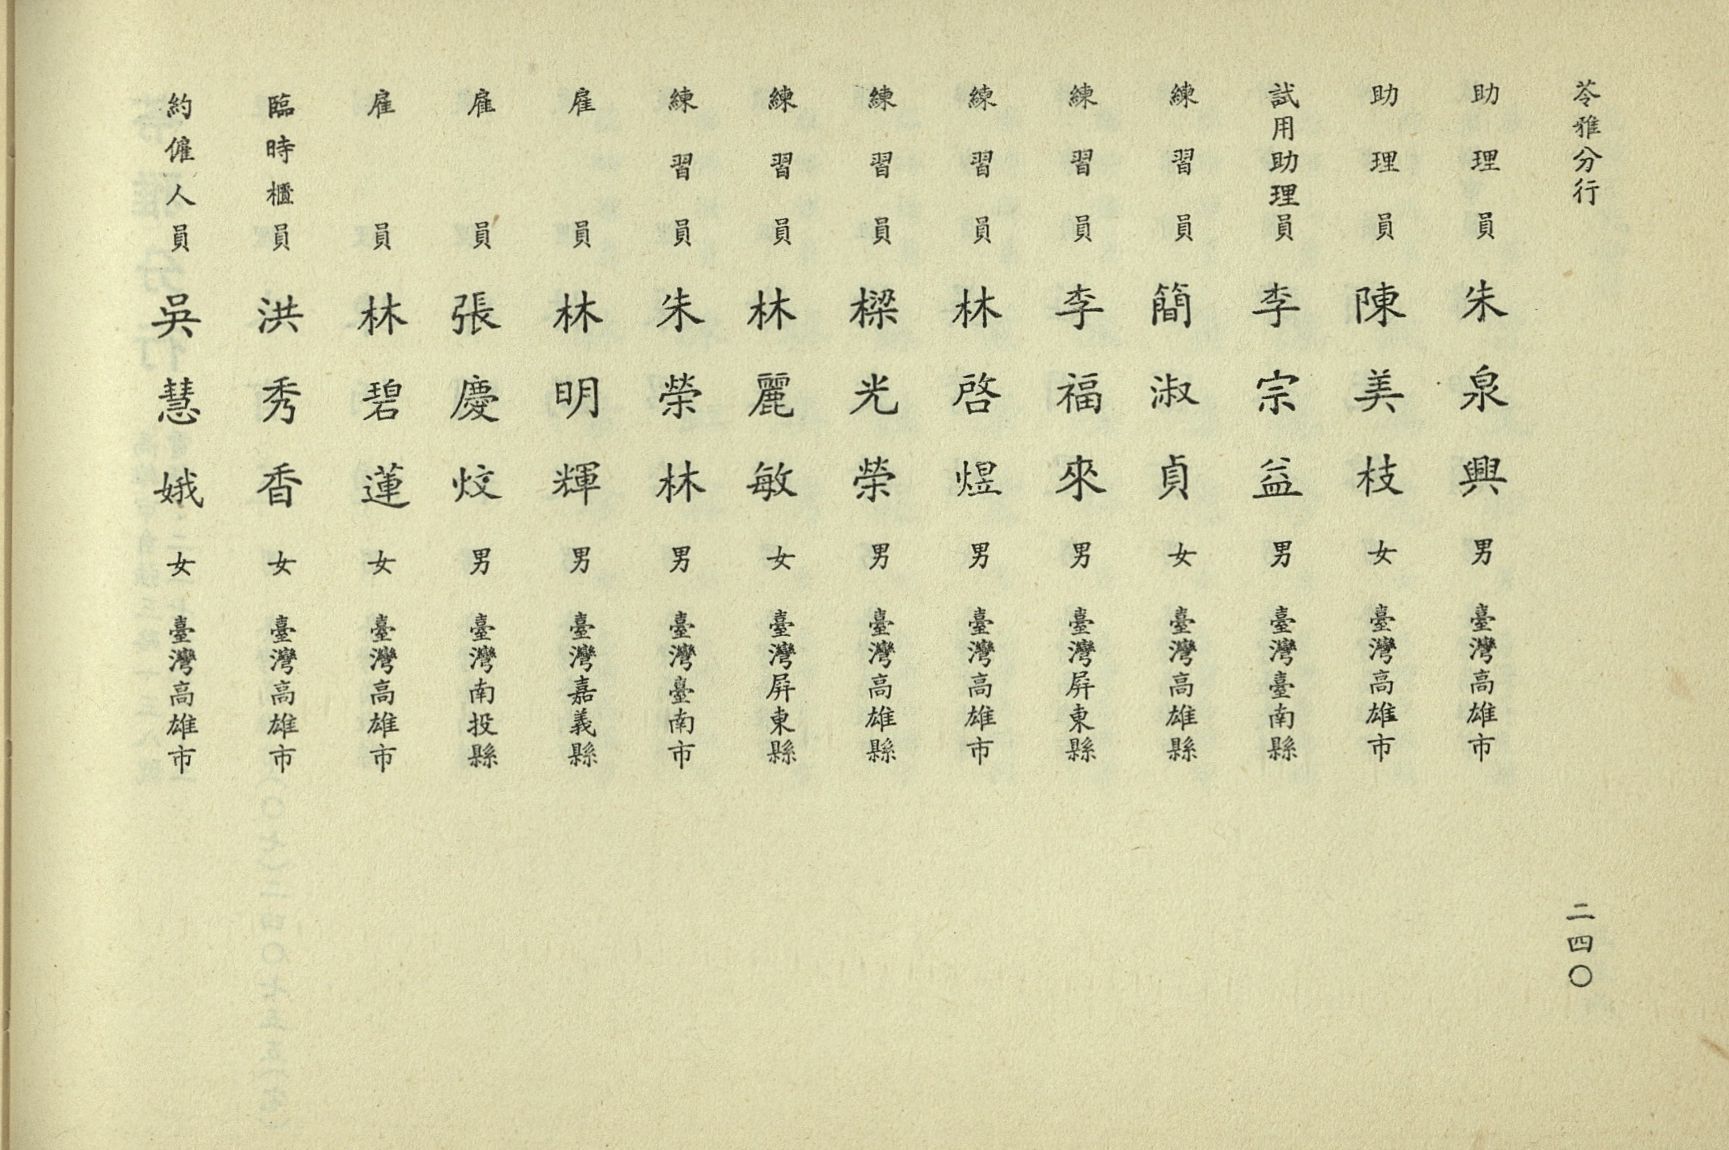 苓雅分行
二四〇
助理員 朱泉興 男 臺灣高雄市
助理員 陳美枝 女 臺灣高雄市
試用助理員 李宗益 男 臺灣臺南縣
練習員 簡淑貞 女 臺灣高雄縣
練習員 李福來 男 臺灣屏東縣
練習員 林啓煜 男 臺灣高雄市
練習員 樑光榮 男 臺灣高雄縣
練習員 林麗敏 女 臺灣屏東縣
練習員 朱榮林 男 臺灣臺南市
雇員 林明輝 男 臺灣嘉義縣
雇員 張慶炆 男 臺灣南投縣
雇員 林碧蓮 女 臺灣高雄市
臨時櫃員 洪秀香 女 臺灣高雄市
約僱人員 吳慧娥 女 臺灣高雄市